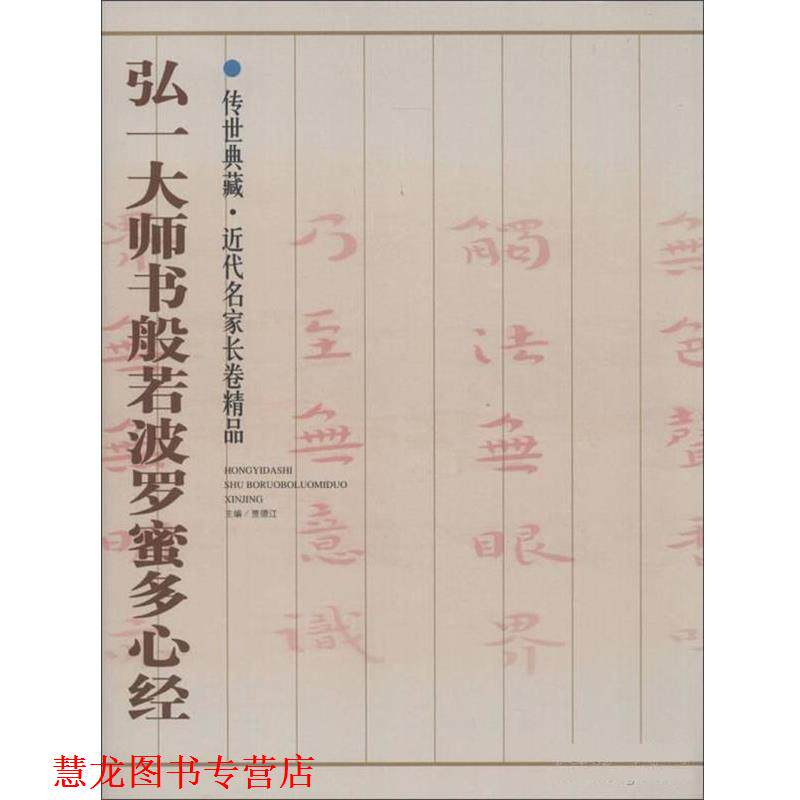 弘一大师书般若波罗蜜多心经
传世典藏·近代名家长卷精品
HONGYIDASHI
SHU BORUOBOLUOMIDUO
XINJING
主编/贾德江
無色聲香味
觸法無眼界
乃至無意識
界無無明亦
慧龙图书专营店